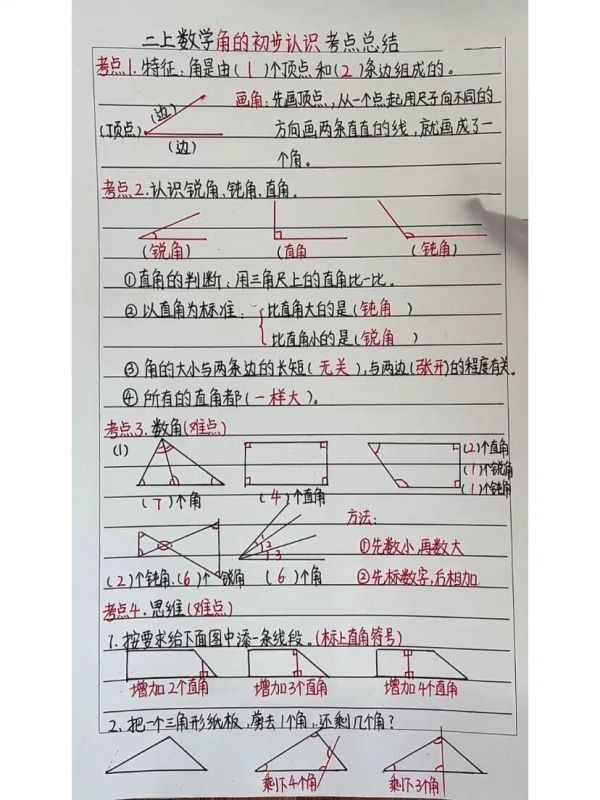 二上数学角的初步认识 考点总结
考点1.特征:角是由(1)个顶点和(2)条边组成的。
画角:先画顶点,从一个点起用尺子向不同的
(边)
(顶点)
方向画两条直直的线,就画成了一
(边)
个角。
考点2.认识锐角、钝角、直角。
(锐角) (直角 (钝角)
①直角的判断:用三角尺上的直角比一比。
②以直角为标准: 比直角大的是(钝角)
比直角小的是(锐角)
③角的大小与两条边的长短(无关),与两边(张开)的程度有关。
④所有的直角都(一样大)。
考点3.数角(难点)
(1)
(2)个直角
(1)个锐角
(7)个角 (4)个直角 (1)个钝角
方法:
1 2 3
①先数小,再数大
(2)个钝角.(6)个锐角 (6)个角 ②先标数字,后相加
考点4.思维(难点)
1.按要求给下面图中添一条线段。(标上直角符号)
增加2个直角 增加3个直角 增加4个直角
2.把一个三角形纸板,剪去1个角,还剩几个角?
剩下4个角 剩下3个角